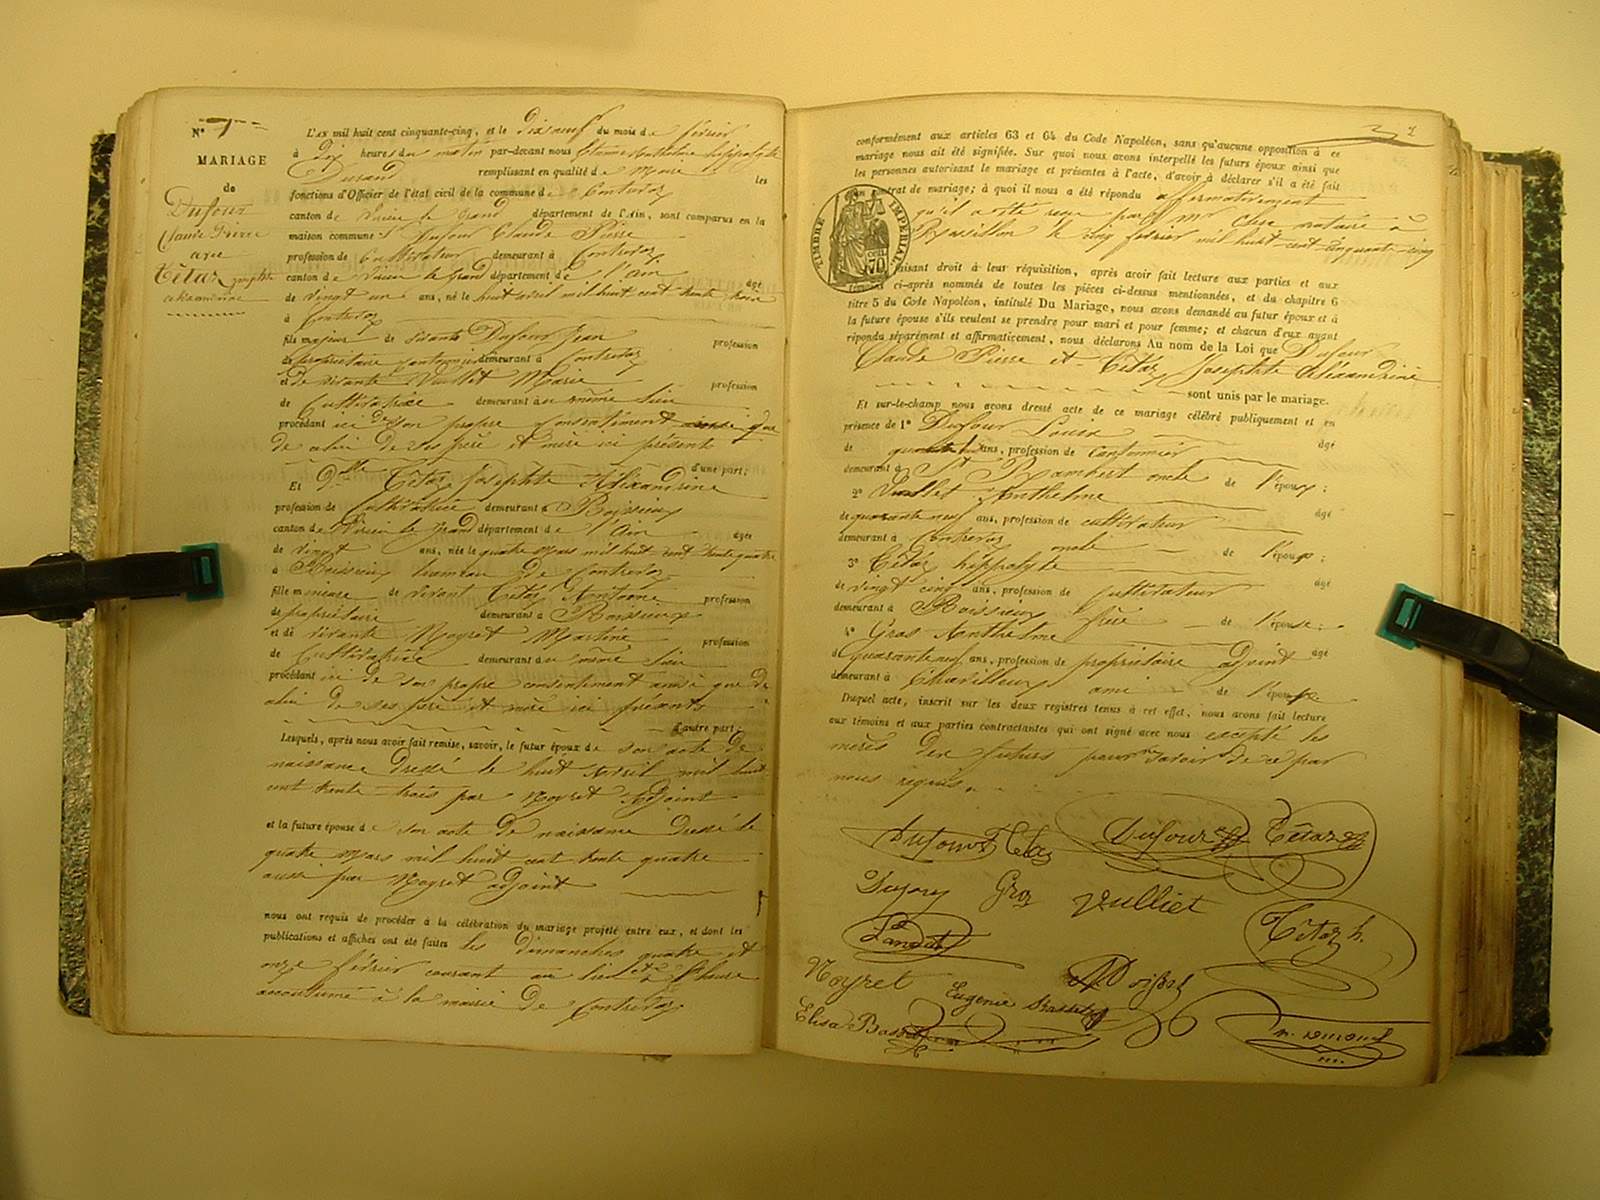 N° 7
MARIAGE
de
Dufour
Claude Pierre
avec
Têtaz Josephte
alexandrine
L'AN mil huit cent cinquante-cinq, et le dix neuf du mois de février
à Dix heures du matin par-devant nous Anthelme hippolyte
Durand remplissant en qualité de Maire les
fonctions d'Officier de l'état civil de la commune de Contrevoz
canton de Virieu le Grand département de l'Ain, sont comparus en la
maison commune Sr Dufour Claude Pierre
profession de Cultivateur demeurant à Contrevoz
canton de Virieu le Grand département de l'Ain âgé
de vingt un ans, né le huit avril mil huit cent trente trois
à Contrevoz
fils majeur de vivante Dufour Jean profession
de propriétaire Cantonnier demeurant à Contrevoz
et de vivante Vulliet Marie profession
de Cultivatrice demeurant au même lieu
procédant ici de son propre consentement ainsi que
de celui de ses père et mère ici présents
d'une part;
Et Dlle Têtaz Josephte Alexandrine
profession de Cultivatrice demeurant à Boissieux
canton de Virieu le Grand département de l'Ain âgée
de vingt ans, née le quatre Mars mil huit cent trente quatre
à Boissieux hameau de Contrevoz
fille mineure de vivant Têtaz Antoine profession
de propriétaire demeurant à Boissieux
et de vivante Noyret Martine profession
de Cultivatrice demeurant au même lieu
procédant ici de son propre consentement ainsi que de
celui de ses père et mère ici présents
d'autre part;
Lesquels, après nous avoir fait remise, savoir, le futur époux de son acte de
naissance dressé le huit Avril mil huit
cent trente trois par Noyret Adjoint
et la future épouse de son acte de naissance dressé le
quatre Mars mil huit cent trente quatre
aussi par Noyret adjoint
nous ont requis de procéder à la célébration du mariage projeté entre eux, et dont les
publications et affiches ont été faites les dimanches quatre et
onze février courant au lieu et à l'heure
accoutumé à la mairie de Contrevoz
2
conformément aux articles 63 et 64 du Code Napoléon, sans qu'aucune opposition à ce
mariage nous ait été signifiée. Sur quoi nous avons interpellé les futurs époux ainsi que
les personnes autorisant le mariage et présentes à l'acte, d'avoir à déclarer s'il a été fait
un contrat de mariage; à quoi il nous a été répondu affirmativement
qu'il a été reçu par Mr notaire à
Rossillon le cinq février mil huit cent cinquante cinq
TIMBRE IMPÉRIAL
70
Faisant droit à leur réquisition, après avoir fait lecture aux parties et aux
témoins ci-après nommés de toutes les pièces ci-dessus mentionnées, et du chapitre 6
titre 5 du Code Napoléon, intitulé Du Mariage, nous avons demandé au futur époux et à
la future épouse s'ils veulent se prendre pour mari et pour femme; et chacun d'eux ayant
répondu séparément et affirmativement, nous déclarons Au nom de la Loi que Dufour
Claude Pierre et Têtaz Josephte Alexandrine
sont unis par le mariage.
Et sur-le-champ nous avons dressé acte de ce mariage célébré publiquement et en
présence de 1° Dufour Louis âgé
de ans, profession de Cantonnier
demeurant à St Rambert oncle de l'époux;
2° Vulliet Anthelme âgé
de quarante neuf ans, profession de cultivateur
demeurant à Contrevoz oncle de l'époux;
3° Têtaz hippolyte âgé
de vingt cinq ans, profession de Cultivateur
demeurant à Boissieux frère de l'épouse;
4° Gros Anthelme âgé
de quarante neuf ans, profession de propriétaire adjoint
demeurant à Chavilleux ami de l'épouse
Duquel acte, inscrit sur les deux registres tenus à cet effet, nous avons fait lecture
aux témoins et aux parties contractantes qui ont signé avec nous excepté les
mères des futurs pour ne savoir de ce par
nous requis.
Dufour Têtaz Dufour Têtaz
Dufour Groz Vulliet
Têtaz h.
Noyret
Eugenie Basset
Elisa Basset
Durand